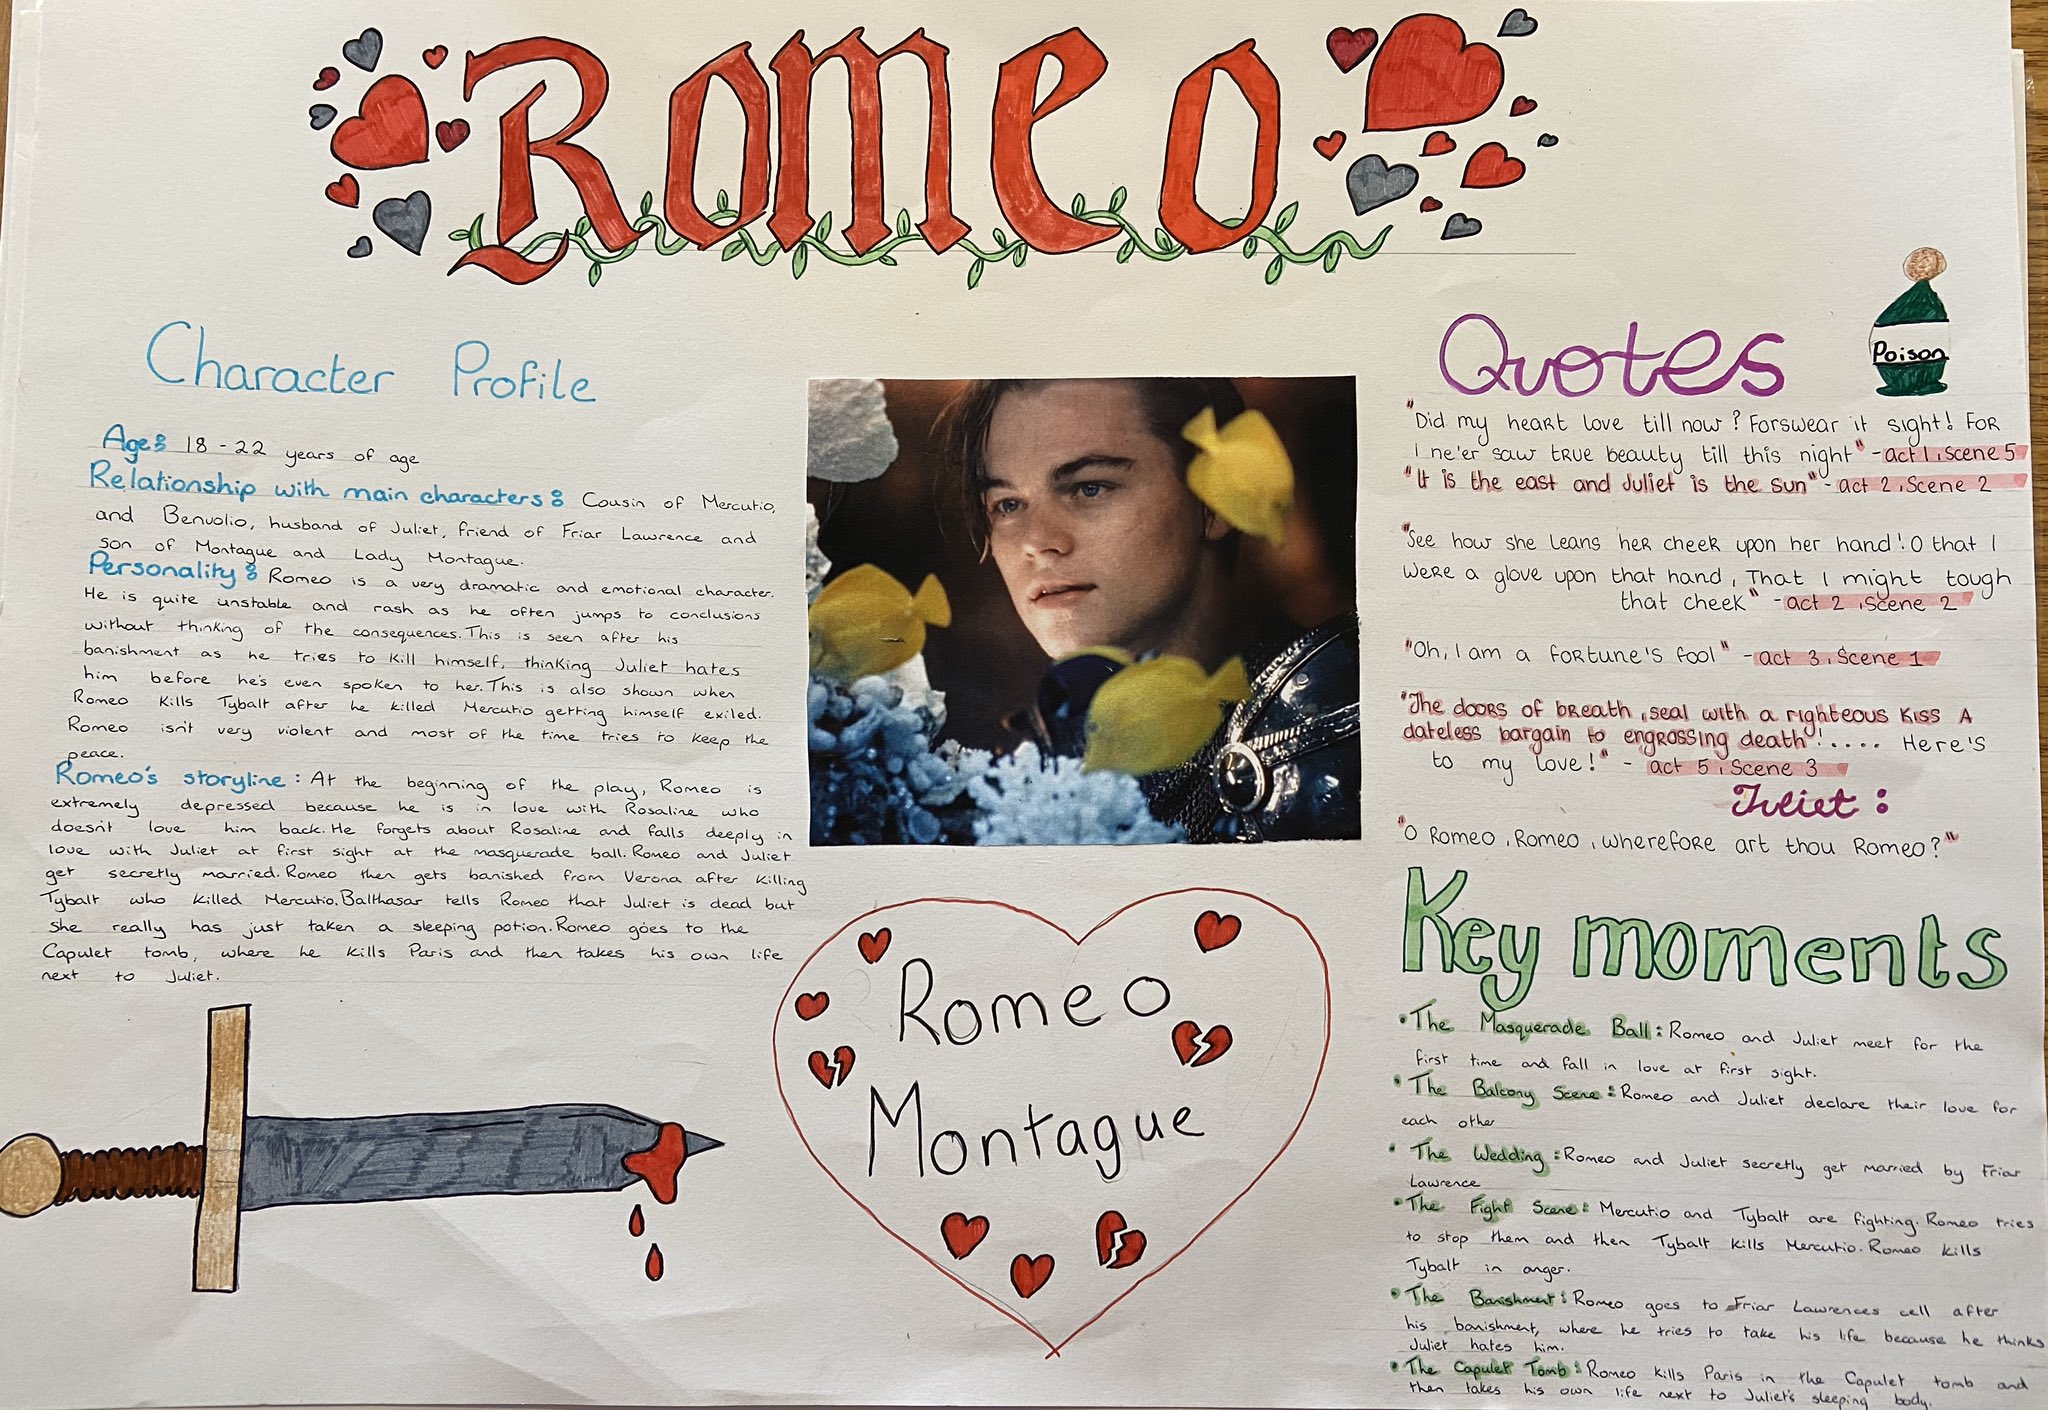 Romeo
Character Profile
Age: 18 - 22 years of age
Relationship with main characters: Cousin of Mercutio,
and Benvolio, husband of Juliet, friend of Friar Lawrence and
son of Montague and Lady Montague.
Personality: Romeo is a very dramatic and emotional character.
He is quite unstable and rash as he often jumps to conclusions
without thinking of the consequences. This is seen after his
banishment as he tries to kill himself, thinking Juliet hates
him before he's even spoken to her. This is also shown when
Romeo kills Tybalt after he killed Mercutio getting himself exiled.
Romeo isn't very violent and most of the time tries to keep the
peace.
Romeo's storyline: At the beginning of the play, Romeo is
extremely depressed because he is in love with Rosaline who
doesn't love him back. He forgets about Rosaline and falls deeply in
love with Juliet at first sight at the masquerade ball. Romeo and Juliet
get secretly married. Romeo then gets banished from Verona after killing
Tybalt who killed Mercutio. Balthasar tells Romeo that Juliet is dead but
she really has just taken a sleeping potion. Romeo goes to the
Capulet tomb, where he kills Paris and then takes his own life
next to Juliet.
Romeo
Montague
Poison
Quotes
"Did my heart love till now? Forswear it sight! For
I ne'er saw true beauty till this night" - act 1, Scene 5
"It is the east and Juliet is the sun" - act 2, Scene 2
"See how she leans her cheek upon her hand! O that I
were a glove upon that hand, That I might tough
that cheek" - act 2, Scene 2
"Oh, I am a fortune's fool" - act 3, Scene 1
"The doors of breath, seal with a righteous kiss A
dateless bargain to engrossing death!.... Here's
to my love!" - act 5, Scene 3
Juliet:
"O Romeo, Romeo, wherefore art thou Romeo?"
Key moments
• The Masquerade Ball: Romeo and Juliet meet for the
first time and fall in love at first sight.
• The Balcony Scene: Romeo and Juliet declare their love for
each other
• The Wedding: Romeo and Juliet secretly get married by Friar
Lawrence
• The Fight Scene: Mercutio and Tybalt are fighting. Romeo tries
to stop them and then Tybalt kills Mercutio. Romeo kills
Tybalt in anger.
• The Banishment: Romeo goes to Friar Lawrences cell after
his banishment, where he tries to take his life because he thinks
Juliet hates him.
• The Capulet Tomb: Romeo kills Paris in the Capulet tomb and
then takes his own life next to Juliet's sleeping body.